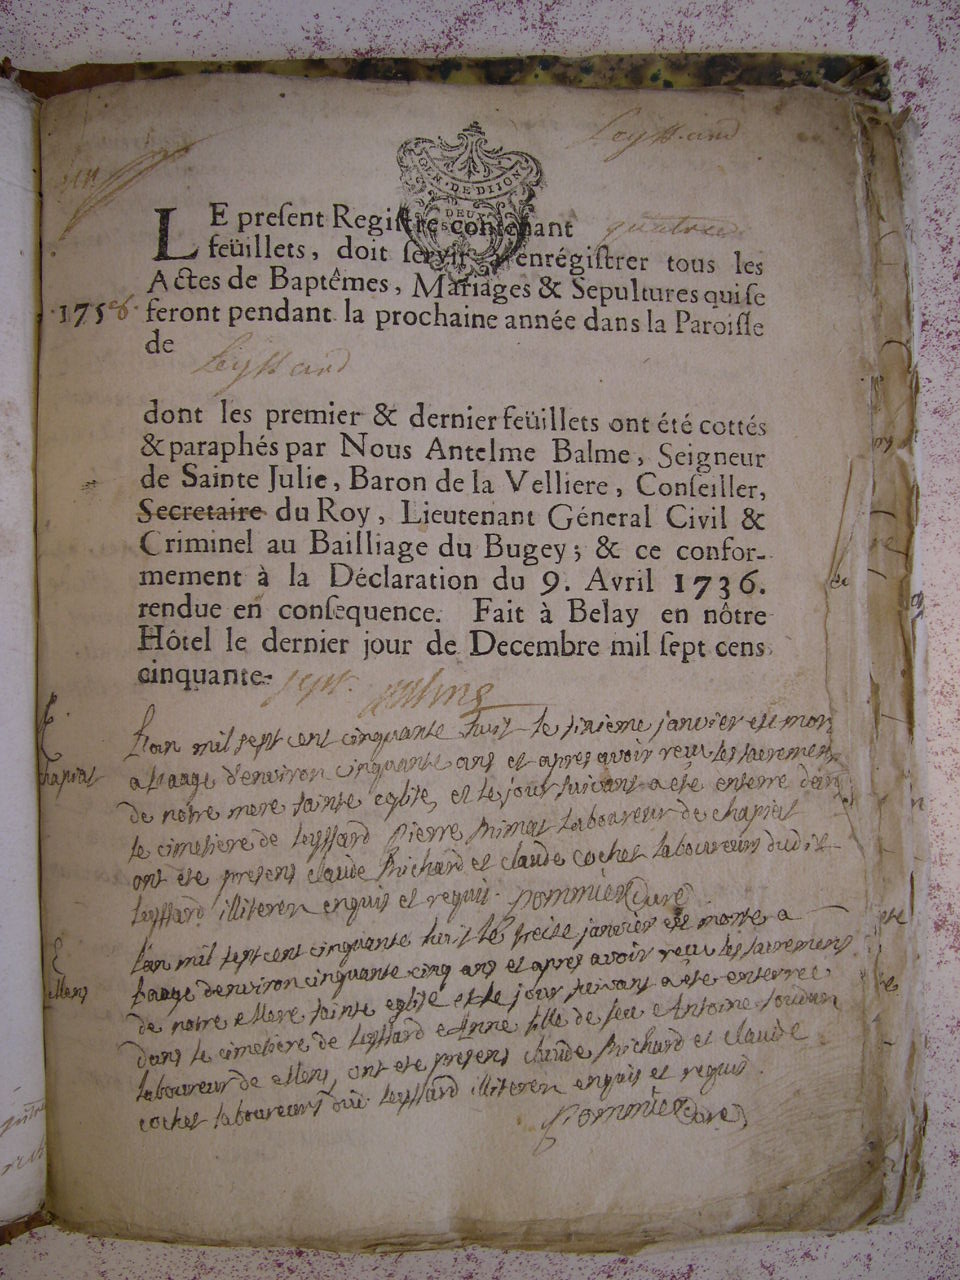 Leyssard
un
GEN. DE DIJON
DEUX
LE preſent Regiſtre contenant quatorze
feüillets, doit ſervir à enrégiſtrer tous les
Actes de Baptêmes, Mariages & Sepultures qui ſe
1758 feront pendant la prochaine année dans la Paroiſſe
de Leyssard
dont les premier & dernier feüillets ont été cottés
& paraphés par Nous Antelme Balme, Seigneur
de Sainte Julie, Baron de la Velliere, Conſeiller,
Secretaire du Roy, Lieutenant Géneral Civil &
Criminel au Bailliage du Bugey; & ce confor-
mement à la Déclaration du 9. Avril 1736.
rendue en conſequence. Fait à Belay en nôtre
Hôtel le dernier jour de Decembre mil ſept cens
cinquante-sept. Balme
L'an mil sept cent cinquante huit le sixieme janvier est mort
chapiat a l'aage d'environ cinquante ans et apres avoir receu les sacremens
de notre mere sainte eglise, et le jour suivant a ete enterre dans
le cimetiere de leyssard pierre primat laboureur de chapiat
ont ete presens claude Richard et claude cochet laboureurs dudit
leyssard illiteren enquis et requis. pommier Curé
L'an mil sept cent cinquante huit le treise janvier est morte a
Mens l'aage d'environ cinquante cinq ans et apres avoir receu les sacremens
de notre Mere sainte eglise et le jour suivant a ete enterree
dans le cimetiere de leyssard Anne fille de feu Antoine
laboureur de Mens, ont ete presens claude Richard et claude
cochet laboureurs dud leyssard illiteren enquis et requis.
pommier Curé